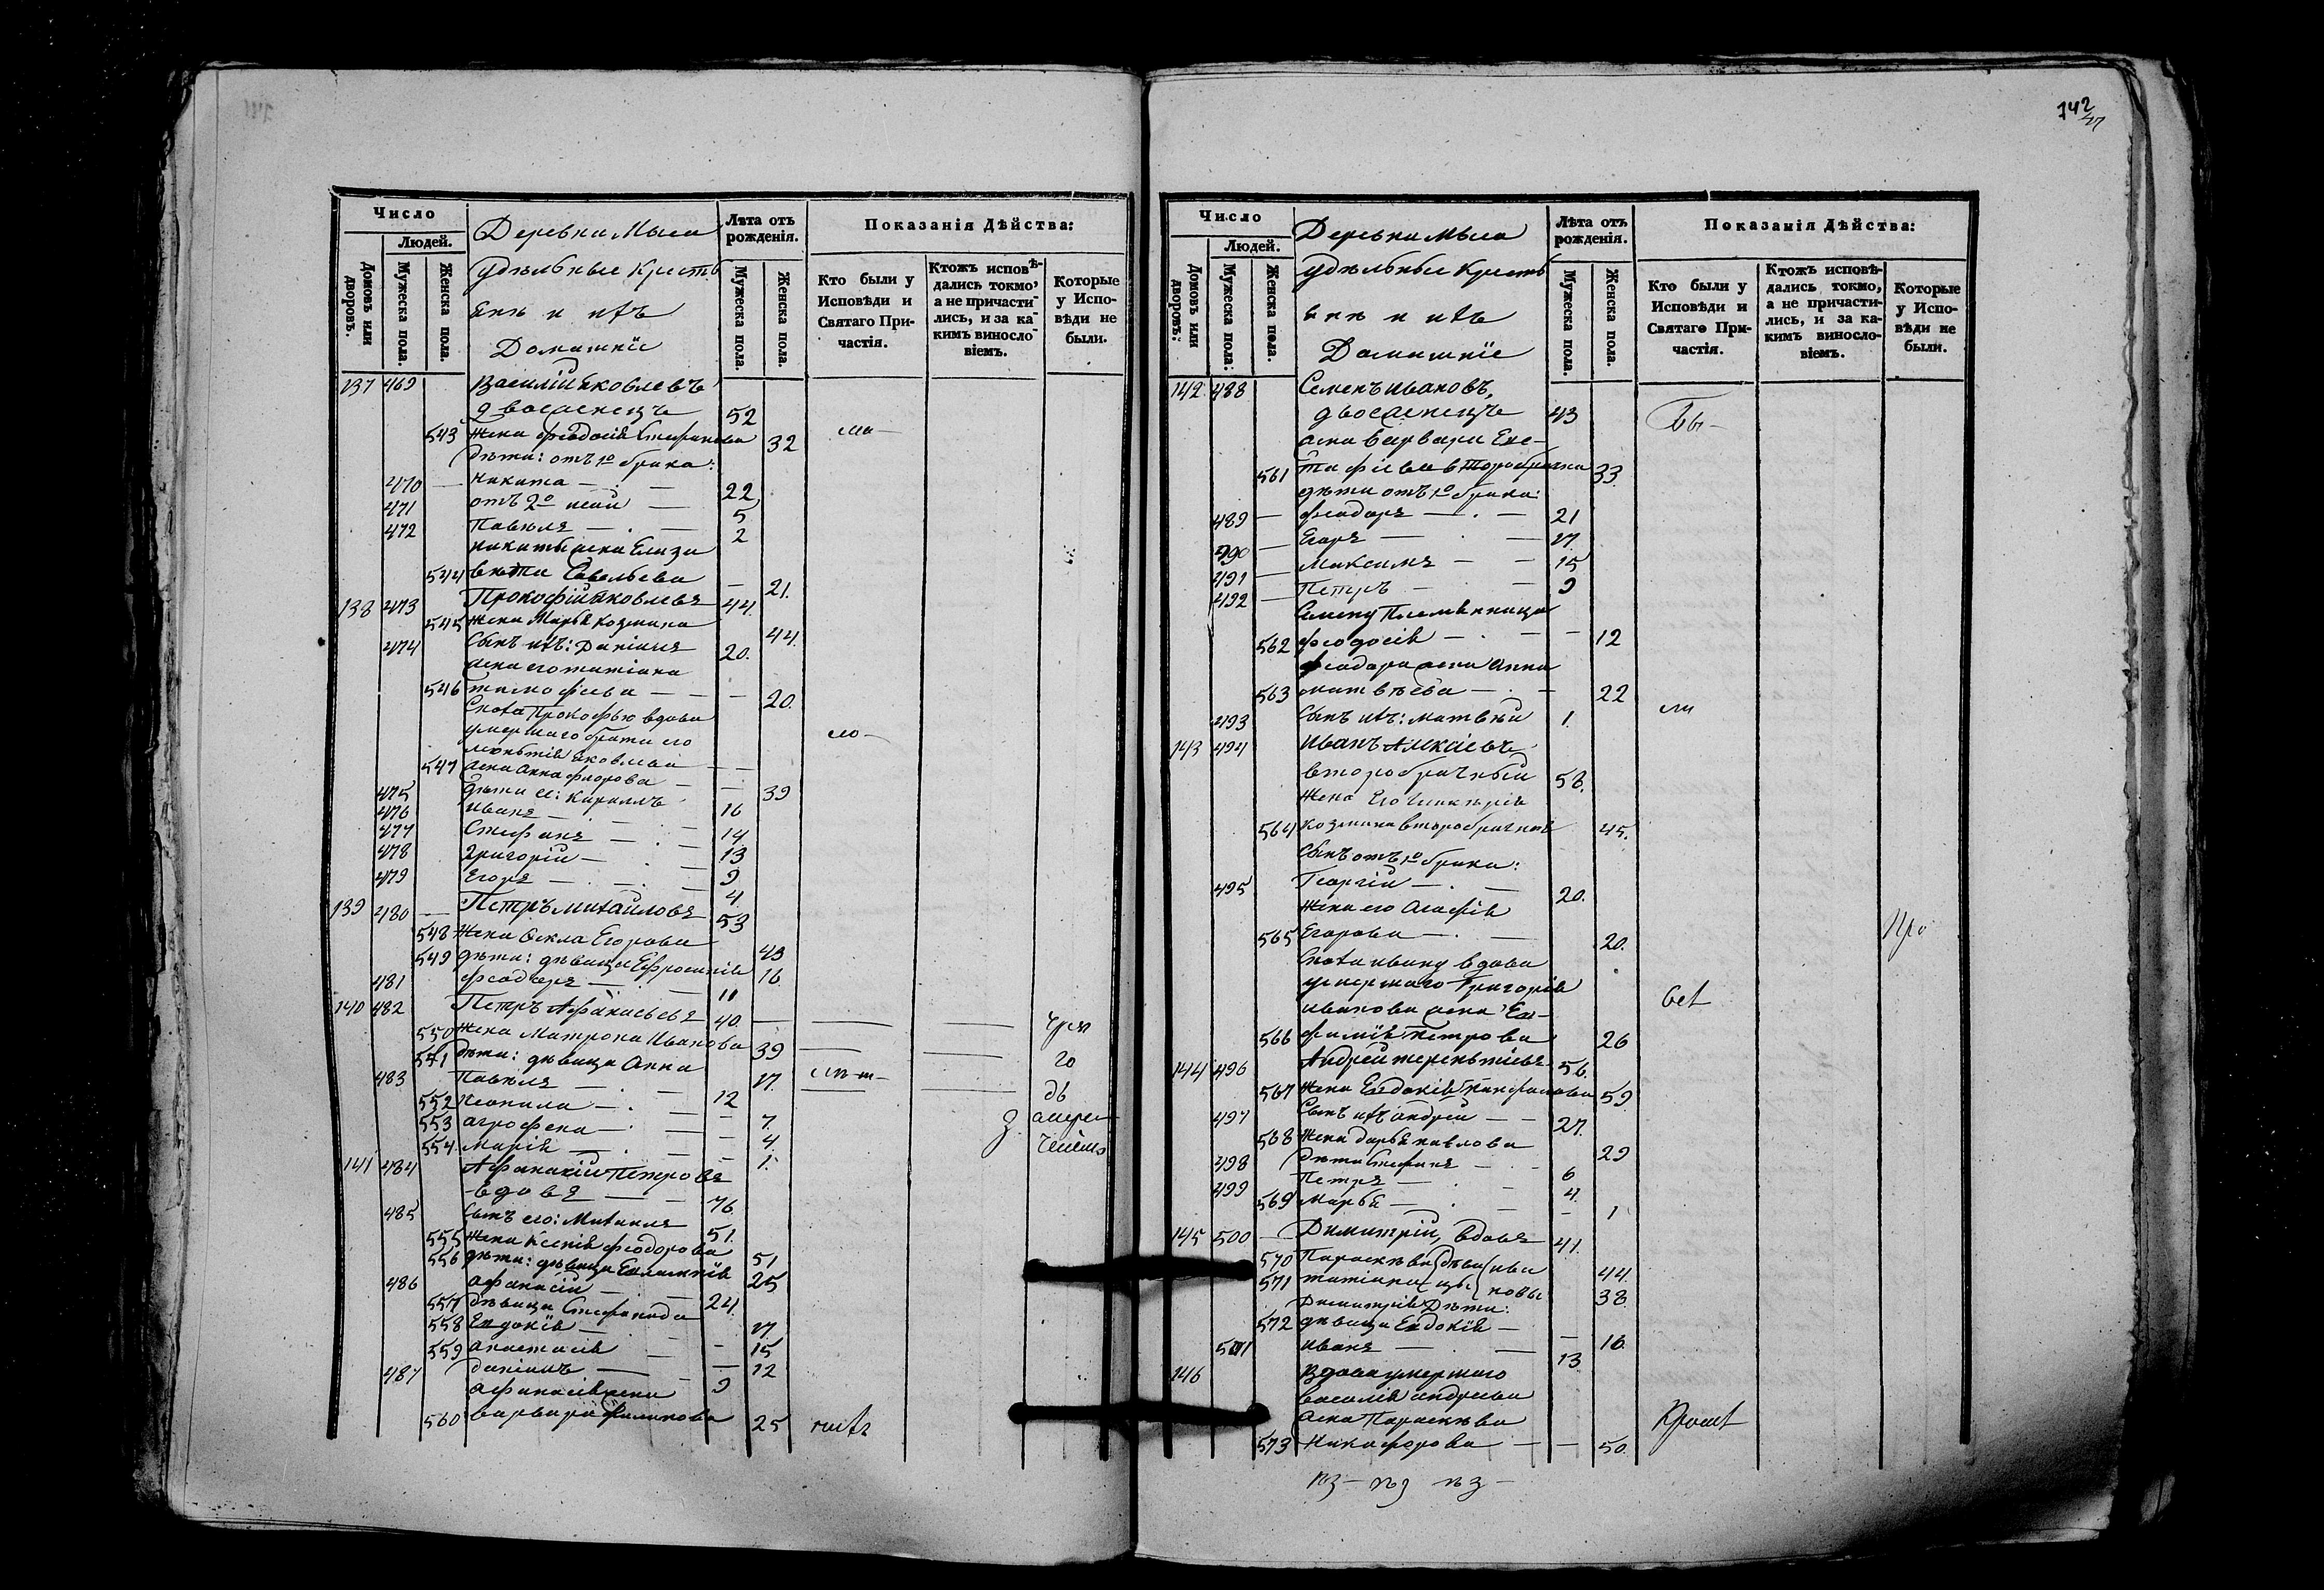 142
47
Число
Людей.
Домовъ или дворовъ.
Мужеска пола.
Женска пола.
Деревни Мыса
удѣльные Крестья
ене и ихъ
Домашніе
Лѣта отъ рожденія.
Мужеска пола.
Женска пола.
Показанія Дѣйства:
Кто были у Исповѣди и Святаго Причастія.
Ктожъ исповѣдались токмо, а не причастились, и за какимъ винословіемъ.
Которые у Исповѣди не были.
137 469 Василій Яковлевъ
двоеженецъ 52
543 Жена Феодосія Стефанова 32
дѣти: отъ 1го брака:
470 Никита 22
471 отъ 2го 5
472 Павелъ 2
Никиты жена Елиза
544 вета Савельева 21.
138 473 Прокофій Яковлевъ 44.
545 Жена Марья Козмина 44.
474 Сынъ ихъ: Даніилъ 20.
жена его Татіана
546 Тимофѣева 20.
Сноха Прокофью вдова
умершаго брата его
Яковлева
547 жена Анна 39
475 дѣти ея: Кириллъ 16
476 Иванъ 14
477 Стефанъ 13
478 Григорій 9
479 Егоръ 4
139 480 Петръ Михайловъ 53
548 Жена Фекла Егорова 49
549 дѣти: дѣвица Ефросинія 16.
481 Феодоръ 11
140 482 Петръ Афанасьевъ 40.
550 Жена Матрона Иванова 39
551 дѣти: дѣвица Анна 17.
483 Павелъ 12
552 Неонила 7.
553 Агрофена 4.
554 Марія 1.
141 484 Афанасій Петровъ
вдовъ 76
485 Сынъ его: Михаилъ 51.
555 Жена Ксенія Феодорова 51
556 дѣти: дѣвица 25
486 Афанасій 24.
557 дѣвица Стефанида 17.
558 Евдокія 15
559 Анастасія 12
487 Даніилъ 9
Афанасія жена
560 Варвара Филипова 25
Число
Людей.
Домовъ или дворовъ.
Мужеска пола.
Женска пола.
Деревни Мыса
удѣльные Крестья
ене и ихъ
Домашніе
Лѣта отъ рожденія.
Мужеска пола.
Женска пола.
Показанія Дѣйства:
Кто были у Исповѣди и Святаго Причастія.
Ктожъ исповѣдались токмо, а не причастились, и за какимъ винословіемъ.
Которые у Исповѣди не были.
142 488 Семенъ Ивановъ,
двоеженецъ 43
жена Варвара Евс-
561 тафіева второбрачна 33.
дѣти отъ 1го брака:
489 Феодоръ 21
490 Егоръ 17.
491 Максимъ 15
492 Петръ 9
Семену Племянница
562 Феодосія 12
Феодора жена Анна
563 Матвѣева 22
493 Сынъ ихъ: Матвѣй 1.
143 494 Иванъ Алексіевъ
второбрачный 58.
Жена Его Гликерія
564 Козмина второбрачная 45.
Сынъ отъ 1го брака:
495 Георгій 20.
Жена его Агафія
565 Егорова 20.
Сноха Ивану вдова
умершаго Григорія
Иванова жена Ев-
566 фимія Петрова 26
144 496 Андрей Терентіевъ 56.
567 Жена Евдокія 59.
497 Сынъ ихъ Андрей 27.
568 Жена Дарья Павлова 29
498 дѣти Стефанъ 6
499 Петръ 4.
569 Марья 1
145 500 Димитрій, Вдовъ 41.
570 Параскева дѣви Ива 44.
571 Татіана цы новы 38.
Димитрія Дѣти:
572 дѣвица Евдокія 16.
501 Иванъ 13.
146 Вдова умершаго
Василія Андреева
жена Параскева
573 Никифорова 50.